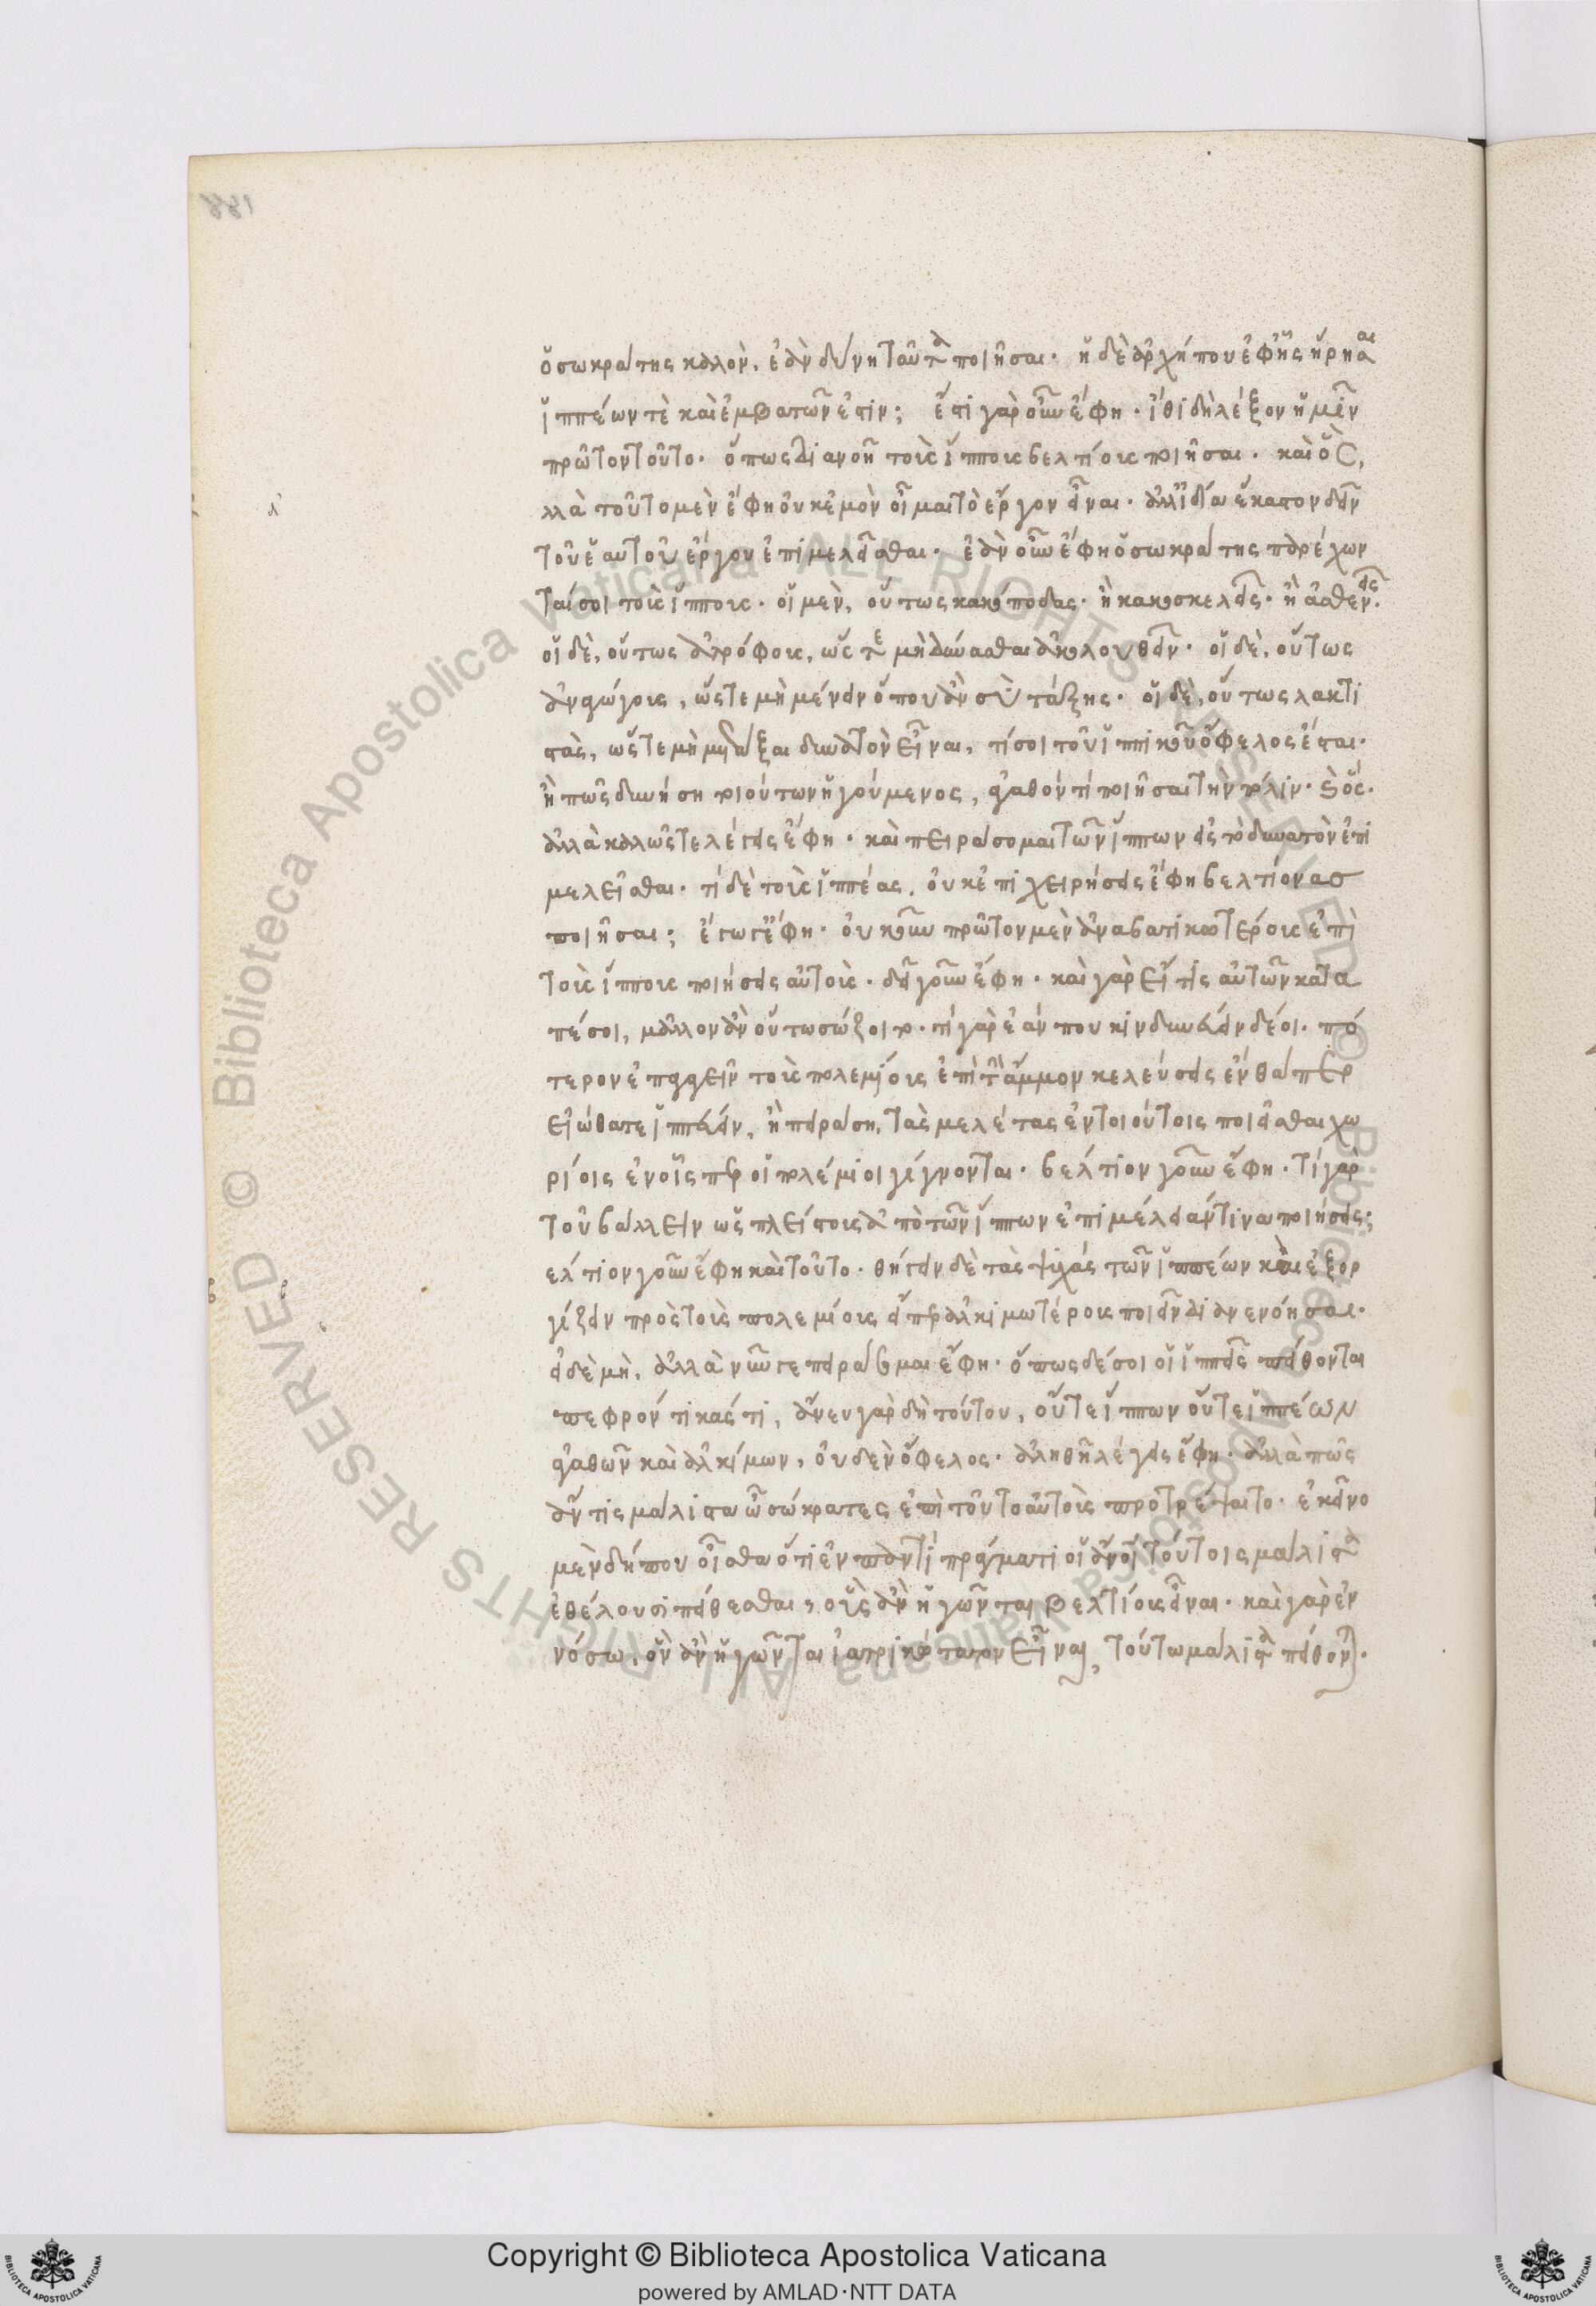 ὁ σωκράτης καλὸν, ἐὰν δύνῃ ταῦτα ποιῆσαι. ἡ δὲ ἀρχή που ἐφ' ἧς ᾕρησαι
ἱππέων τὲ καὶ ἐμβατῶν ἐστιν; ἔστι γὰρ οὖν ἔφη. ἴθι δὴ λέξον ἡμῖν
πρῶτον τοῦτο. ὅπως διανοῇ τοὺς ἵππους βελτίους ποιῆσαι. καὶ ὃς,
λλὰ τοῦτο μὲν ἔφη οὐκ ἐμὸν οἶμαι τὸ ἔργον εἶναι. ἀλλ' ἰδία ἕκαστον δεῖν
τοῦ ἑαυτοῦ ἔργου ἐπιμελεῖσθαι. ἐὰν οὖν ἔφη ὁ σωκράτης παρέχων
ταί σοι τοὺς ἵππους. οἱ μὲν, οὕτως κακόποδας. ἢ κακοσκελεῖς. ἢ ἀσθενεῖς.
οἱ δὲ, οὕτως ἀτρόφους, ὥστε μὴ δύνασθαι ἀκολουθεῖν. οἱ δὲ, οὕτως
ἀναγώγους, ὥστε μὴ μένειν ὅπου ἂν σὺ τάξῃς. οἱ δὲ, οὕτως λακτι
στὰς, ὥστε μὴ δὲ τάξαι δυνατὸν εἶναι, τί σοι τοῦ ἱππικοῦ ὄφελος ἔσται.
ἢ πῶς δυνήσῃ τοιούτων ἡγούμενος, ἀγαθόν τι ποιῆσαι τὴν πόλιν. καὶ ὅς.
ἀλλὰ καλῶς τε λέγεις ἔφη. καὶ πειράσομαι τῶν ἵππων εἰς τὸ δυνατὸν ἐπι
μελεῖσθαι. τί δὲ τοὺς ἱππέας, οὐκ ἐπιχειρήσεις ἔφη βελτίονας
ποιῆσαι; ἔγωγ' ἔφη. οὐκοῦν πρῶτον μὲν ἀναβατικωτέρους ἐπὶ
τοὺς ἵππους ποιήσεις αὐτοὺς. δεῖ γοῦν ἔφη. καὶ γὰρ εἴ τις αὐτῶν κατα
πέσοι, μᾶλλον ἂν οὕτω σώζοιτο. τί γὰρ ἐάν που κινδυνεύειν δέοι. πό
τερον ἐπαγαγεῖν τοὺς πολεμίους ἐπὶ τὴν ἄμμον κελεύσεις ἔνθά περ
εἰώθατε ἱππεύειν, ἢ πειράσῃ, τὰς μελέτας ἐν τοιούτοις ποιεῖσθαι χω
ρίοις ἐν οἷς περ οἱ πολέμιοι γίγνονται. βέλτιον γοῦν ἔφη. τί γὰρ
τοῦ βάλλειν ὡς πλείστους ἀπὸ τῶν ἵππων ἐπιμέλειάν τινα ποιήσεις;
έλτιον γοῦν ἔφη καὶ τοῦτο. θήγειν δὲ τὰς ψυχὰς τῶν ἱππέων καὶ ἐξορ
γίζειν πρὸς τοὺς πολεμίους εἴπερ ἀλκιμωτέρους ποιεῖν διανενόησαι.
εἰ δὲ μὴ, ἀλλὰ νῦν γε πειράσομαι ἔφη. ὅπως δέ σοι οἱ ἱππεῖς πείθονται
πεφρόντικάς τι, ἄνευ γὰρ δὴ τούτου, οὔτε ἵππων οὔτε ἱππέων
ἀγαθῶν καὶ ἀλκίμων, οὐδὲν ὄφελος. ἀληθῆ λέγεις ἔφη. ἀλλὰ πῶς
ἄν τις μάλιστα ὦ σώκρατες ἐπὶ τοῦτο αὐτοὺς προτρέψαιτο. ἐκεῖνο
μὲν δήπου οἶσθα ὅτι ἐν παντὶ πράγματι οἱ ἄνοι τούτοις μάλιστα
ἐθέλουσι πείθεσθαι, οὓς ἂν ἡγῶνται βελτίους εἶναι. καὶ γὰρ ἐν
νόσω, ὃν ἂν ἡγῶνται ἰατρικώτατον εἶναι, τούτω μάλιστα πείθονται.